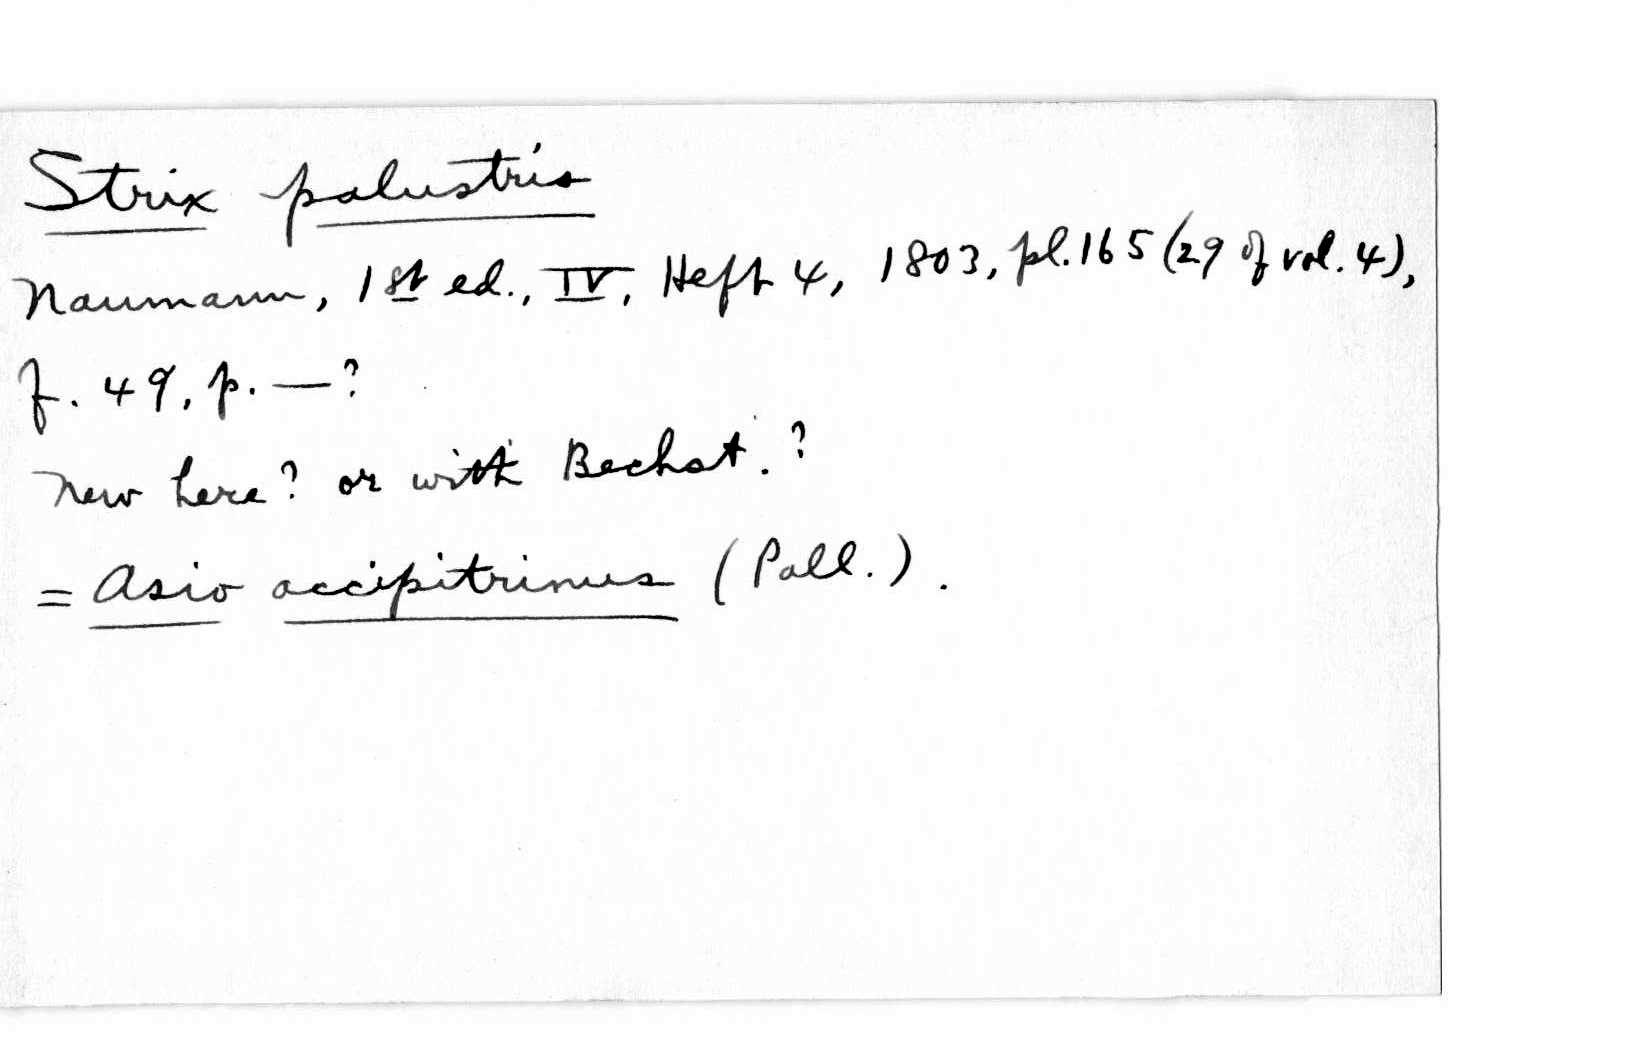 Strix palustris
Naumann, 1st ed., IV, Heft 4, 1803, pl. 165 (29 of vol. 4),
f. 49, p. — ?
New here? or with Bechst. ?
= Asio accipitrinus (Pall.).